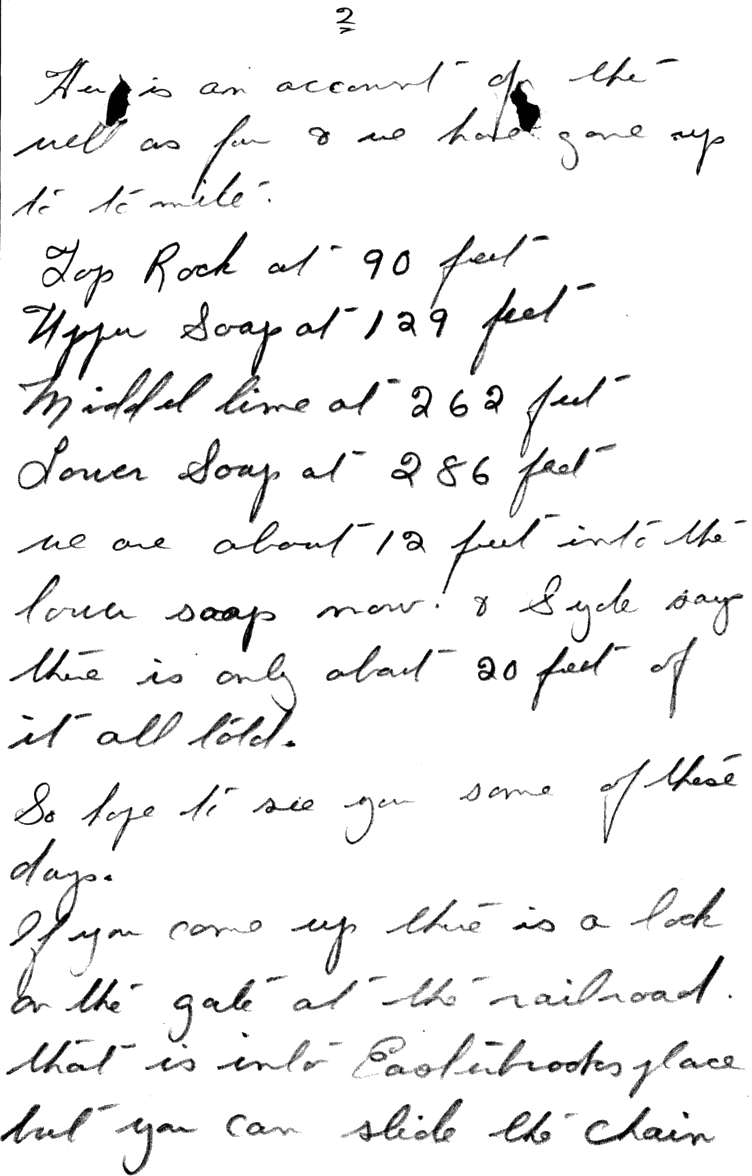 2
Here is an account of the
well as far & we have gone up
to to mite.
Top Rock at 90 feet
Upper Soap at 129 feet
Middel lime at 262 feet
Lower Soap at 286 feet
we are about 12 feet into the
lower soap now. & Syde says
there is only about 20 feet of
it all told.
So hope to see you some of these
days.
If you come up there is a lock
on the gate at the railroad.
that is into Easterbrooks place
but you can slide the chain